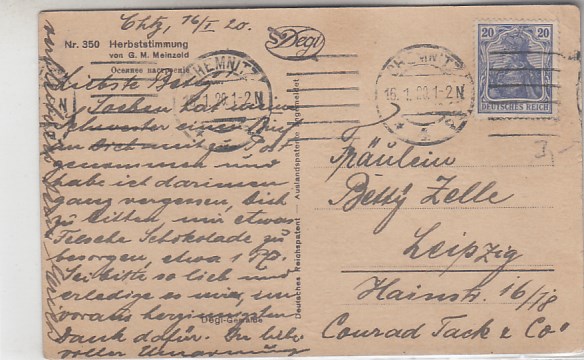 Chtz, 16/I 20.
Nr. 350 Herbststimmung
von G. M. Meinzold
Осеннее настроение
Degi
Liebste Betty
Soeben hat deine
Schwester einen Brief
genommen und
habe ich darin
ganz vergessen, Dich
zu bitten, mir etwas
Felsche Schokolade zu
besorgen, etwa 1 Pf.
Sei bitte so lieb und
erledige es mir, im
voraus herzinnigsten
Dank dafür. In lieber
voller Umarmung
Degi-Gemälde
Deutsches Reichspatent
Auslandspatente angemeldet
CHEMNITZ
16.1.20.1-2 N
CHEMNITZ
16.1.20.1-2 N
20 20
DEUTSCHES REICH
Fräulein
Betty Zelle
Leipzig
Hainstr. 16/18
Conrad Tack & Co